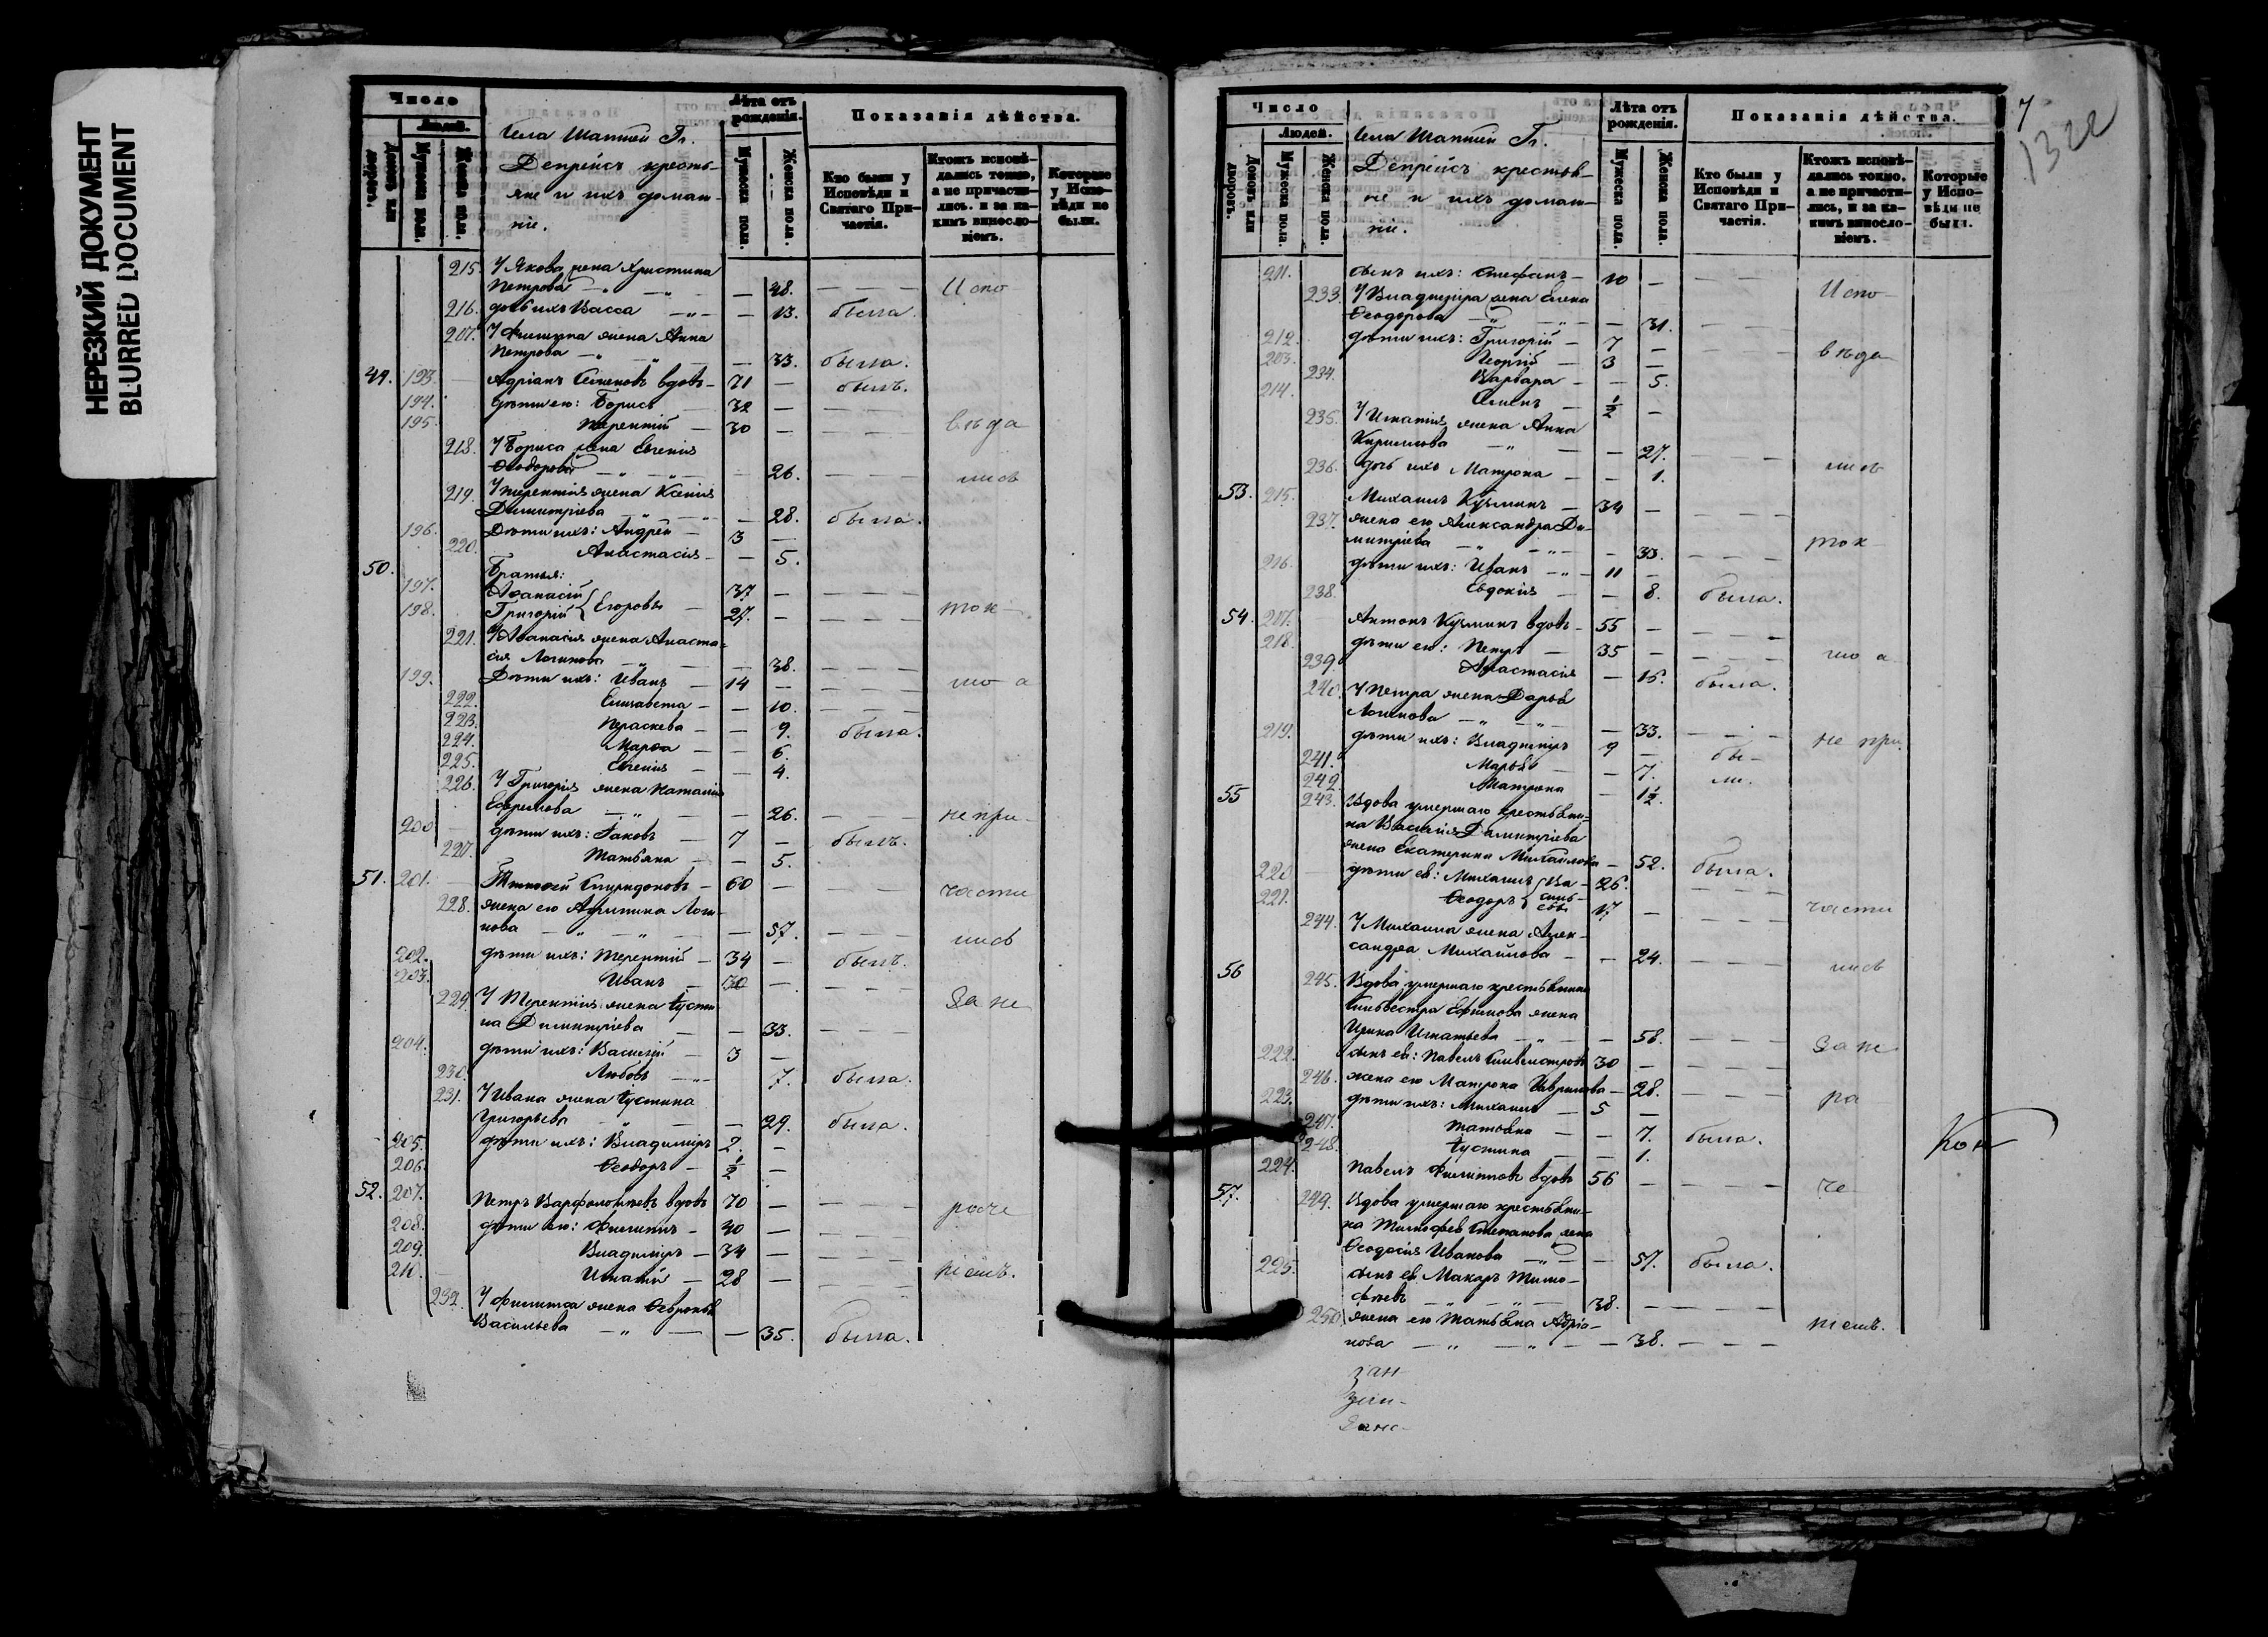 НЕРЕЗКИЙ ДОКУМЕНТ
BLURRED DOCUMENT
Число
Людей.
Домовъ или дворовъ.
Мужеска пола.
Женска пола.
Села Шаттей Гг.
Депрейсъ кресть-
яне и ихъ домаш-
ніе.
Лѣта отъ рожденія.
Мужеска пола.
Женска пола.
Показанія дѣйства.
Кто были у Исповѣди и Святаго Причастія.
Ктожъ исповѣ-
дались токмо,
а не причасти-
лись, и за ка-
кимъ винословіемъ.
Которые у Испо-
вѣди не были.
215. У Якова жена Христина
Петрова — „ — „ — — 48. — — — Испо-
216. дочь ихъ Васса — „ — — 13. была.
217. У Филиппа жена Анна
Петрова — „ — „ — — 33. была.
49. 193. Адріанъ Семеновъ вдовъ — 71 — былъ.
194. дѣти его: Борисъ — 32 — — — —
195. Терентій — 30 — — — — вѣда
218. У Бориса жена Евгенія
Ѳеодорова — „ — „ — — 26. — — — лись
219. У Терентія жена Ксенія
Димитріева — „ — — 28. была.
196. Дѣти ихъ: Андрей — 3 —
220. Анастасія — — 5.
50. Братья:
197. Аѳанасій } Егоровы — 37 — — — —
198. Григорій 27. — — — — ток-
221. У Аѳанасія жена Анаста-
сія Логинова — „ — — 38. — — —
199. Дѣти ихъ: Иванъ — 14 — — — — мо а
222. Елизавета — — 10. — — —
223. Параскева — — 9. была.
224. Марѳа — — 6.
225. Евгенія — — 4.
226. У Григорія жена Наталія
Ефремова — „ — — 26. — — не при-
200 дѣти ихъ: Іаковъ — 7 — былъ.
227. Татьяна — — 5.
51. 201. Тимоѳей Спиридоновъ — 60 — — — — части
228. жена его Агрипина Логи-
нова — „ — „ — — 57. — — — лись
202. дѣти ихъ: Терентій — 34 — былъ.
203. Иванъ — 30 — — — —
229. У Терентія жена Іусти-
на Димитріева — — 33. — — — за не
204. дѣти ихъ: Василій — 3 —
230. Любовь — „ — 7. была.
231. У Ивана жена Іустина
Григорьева — „ — — 29. была.
205. дѣти ихъ: Владиміръ 2. —
206. Ѳеодоръ — ½ —
52. 207. Петръ Варфоломѣевъ вдовъ 70 — — — — раче
208. дѣти его: Филиппъ — 40 — — — —
209. Владиміръ — 34 — — — —
210. Игнатій — 28 — — — — ніемъ.
232. У Филиппа жена Ѳевронія
Васильева — „ — — 35. была.
7
1322
Число
Людей.
Домовъ или дворовъ.
Мужеска пола.
Женска пола.
Села Шаттей Гг.
Депрейсъ крестья-
не и ихъ домаш-
ніе.
Лѣта отъ рожденія.
Мужеска пола.
Женска пола.
Показанія дѣйства.
Кто были у Исповѣди и Святаго Причастія.
Ктожъ исповѣ-
дались токмо,
а не причасти-
лись, и за ка-
кимъ винословіемъ.
Которые у Испо-
вѣди не были.
211. сынъ ихъ: Стефанъ — 10 — — — — Испо-
233. У Владиміра жена Елена
Ѳеодорова — „ — „ — — 31. — — —
212. дѣти ихъ: Григорій — 7 — вѣда
213. Георгій — 3 —
234. Варвара — — 5.
214. Семенъ — ½ —
235. У Игнатія жена Анна
Кириллова — „ — — 27. — — — лись
236. дочь ихъ Матрона — — 1.
53. 215. Михаилъ Кузминъ — 34 — — — —
237. жена его Александра Ди-
митріева — „ — „ — — 33. — — — ток-
216. дѣти ихъ: Иванъ — „ — 11 —
238. Евдокія — — 8. была.
54. 217. Антонъ Кузминъ вдовъ — 55 — — — —
218. дѣти его: Петръ — 35 — — — — мо а
239. Анастасія — 15. была.
240. У Петра жена Дарья
Логинова — „ — „ — — 33. — — — не при-
219. дѣти ихъ: Владиміръ 9 — бы-
241. Марья — — 7. ли.
242. Матрона — 1½.
55 243. Вдова умершаго крестьяни-
на Василія Димитріева
жена Екатерина Михайлова — 52. была.
220 дѣти ея: Михаилъ } Ва- — 26. — — —
221. Ѳеодоръ силь-
евы 17 — — — — части
244. У Михаила жена Алек-
сандра Михайлова — — 24. — — — лись
56 245. Вдова умершаго крестьянина
Сильвестра Ефимова жена
Ирина Игнатьева — „ — — 58. — — — за не
222. сынъ ея: Павелъ Сильвестровъ 30 — — — —
246. жена его Матрона Гаврилова — 28. — — —
223. дѣти ихъ: Михаилъ — 5 — ра
247. Татьяна — — 7. была.
248. Іустина — — 1.
224. Павелъ Филипповъ вдовъ 56 — — — — че-
57. 249. Вдова умершаго крестьяни-
на Тимофея Степанова жена
Ѳеодосія Иванова — „ — — 57. была.
225. сынъ ея Макаръ Тимо-
фѣевъ — „ — „ — 38. — — — —
250 жена его Татьяна Адріа-
нова — „ — „ — — 38. — — — ніемъ.
Кон